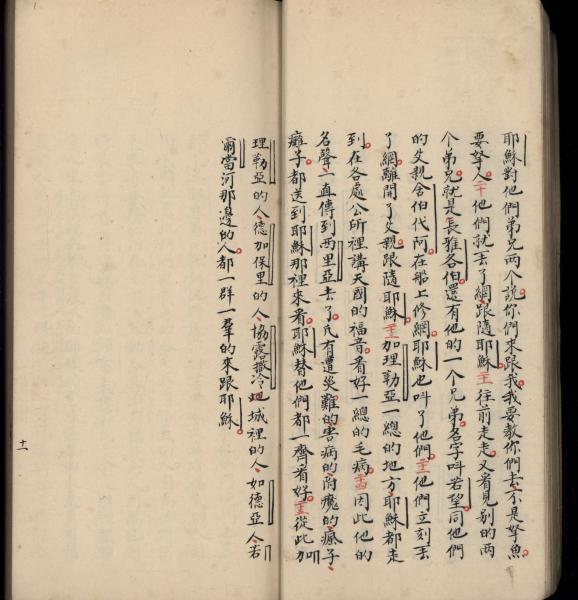 耶穌對他們弟兄两个說。你們來跟我。我要教你們去、不是拏魚。
要拏人。二十他們就丢了網、跟隨耶穌。二一往前走走。又看見别的兩
个弟兄。就是長雅各伯。還有他的一个兄弟。名字呌若望。同他們
的父親舍伯代阿。在船上修網。耶穌也呌了他們。二二他們立刻丟
了網。離開了父親。跟隨耶穌。二三加理勒亞一總的地方、耶穌都走
到。在各處公所裡講天國的福音。看好一總的毛病。二四因此他的
名聲、一直傳到西里亞去了。凡有遭災難的、害病的、附魔的、瘋子、
癱子、都送到耶穌那裡來看。耶穌替他們都一齊看好。二五從此加
理勒亞的人、德加保里的人、協露撒冷城裡的人、如德亞人、若
爾當河那邊的人、都一群一羣的來跟耶穌。
十一